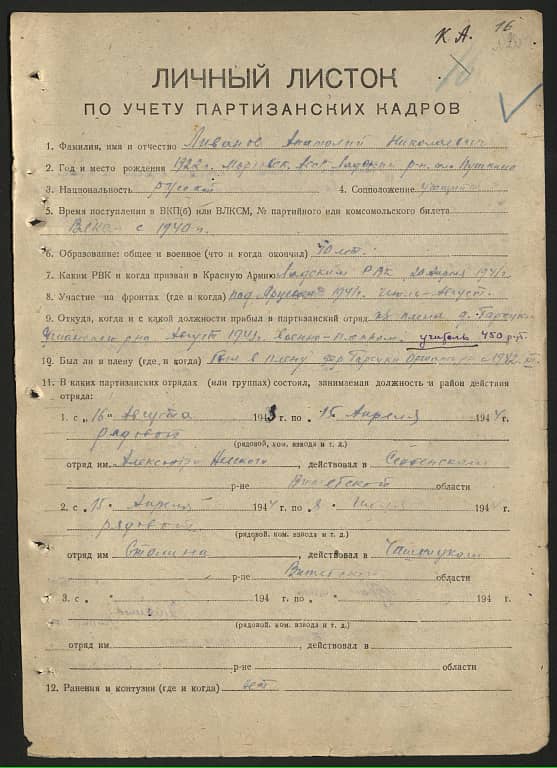 К.А. 16
ЛИЧНЫЙ ЛИСТОК
ПО УЧЕТУ ПАРТИЗАНСКИХ КАДРОВ
1. Фамилия, имя и отчество Ливанов Анатолий Николаевич
2. Год и место рождения 1922 г. р-н село Пушкино
3. Национальность русский 4. Соцположение учащийся
5. Время поступления в ВКП(б) или ВЛКСМ, № партийного или комсомольского билета
с 1940 г.
6. Образование: общее и военное (что и когда окончил)
7. Каким РВК и когда призван в Красную Армию Ладским РВК 1941 г.
8. Участие на фронтах (где и когда) под 1941 г. июль-август.
9. Откуда, когда и с какой должности прибыл в партизанский отряд из плена д.
август военно-пленный учитель 450 р.
10. Был ли в плену (где, и когда) был в плену
11. В каких партизанских отрядах (или группах) состоял, занимаемая должность и район действия
отряда:
1. с „16" Августа 1943 г. по „15" Апреля 1944 г.
рядовой
(рядовой, ком. взвода и т. д.)
отряд им. Александра Невского, действовал в
р-не Витебской области
2. с „15" Апреля 1944 г. по 1944 г.
рядовой
(рядовой, ком. взвода и т. д.)
отряд им Сталина, действовал в Чашницком
р-не Витебской области
3. с „ " 194 г. по „ " 194 г.
(рядовой, ком. взвода и т. д.)
отряд им. , действовал в
р-не области
12. Ранения и контузии (где и когда) нет